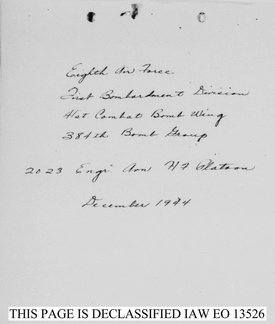 Eighth Air Force
First Bombardment Division
41st Combat Bomb Wing
384th Bomb Group
2023 Engr. Avn F F Platoon
December 1944
THIS PAGE IS DECLASSIFIED IAW EO 13526